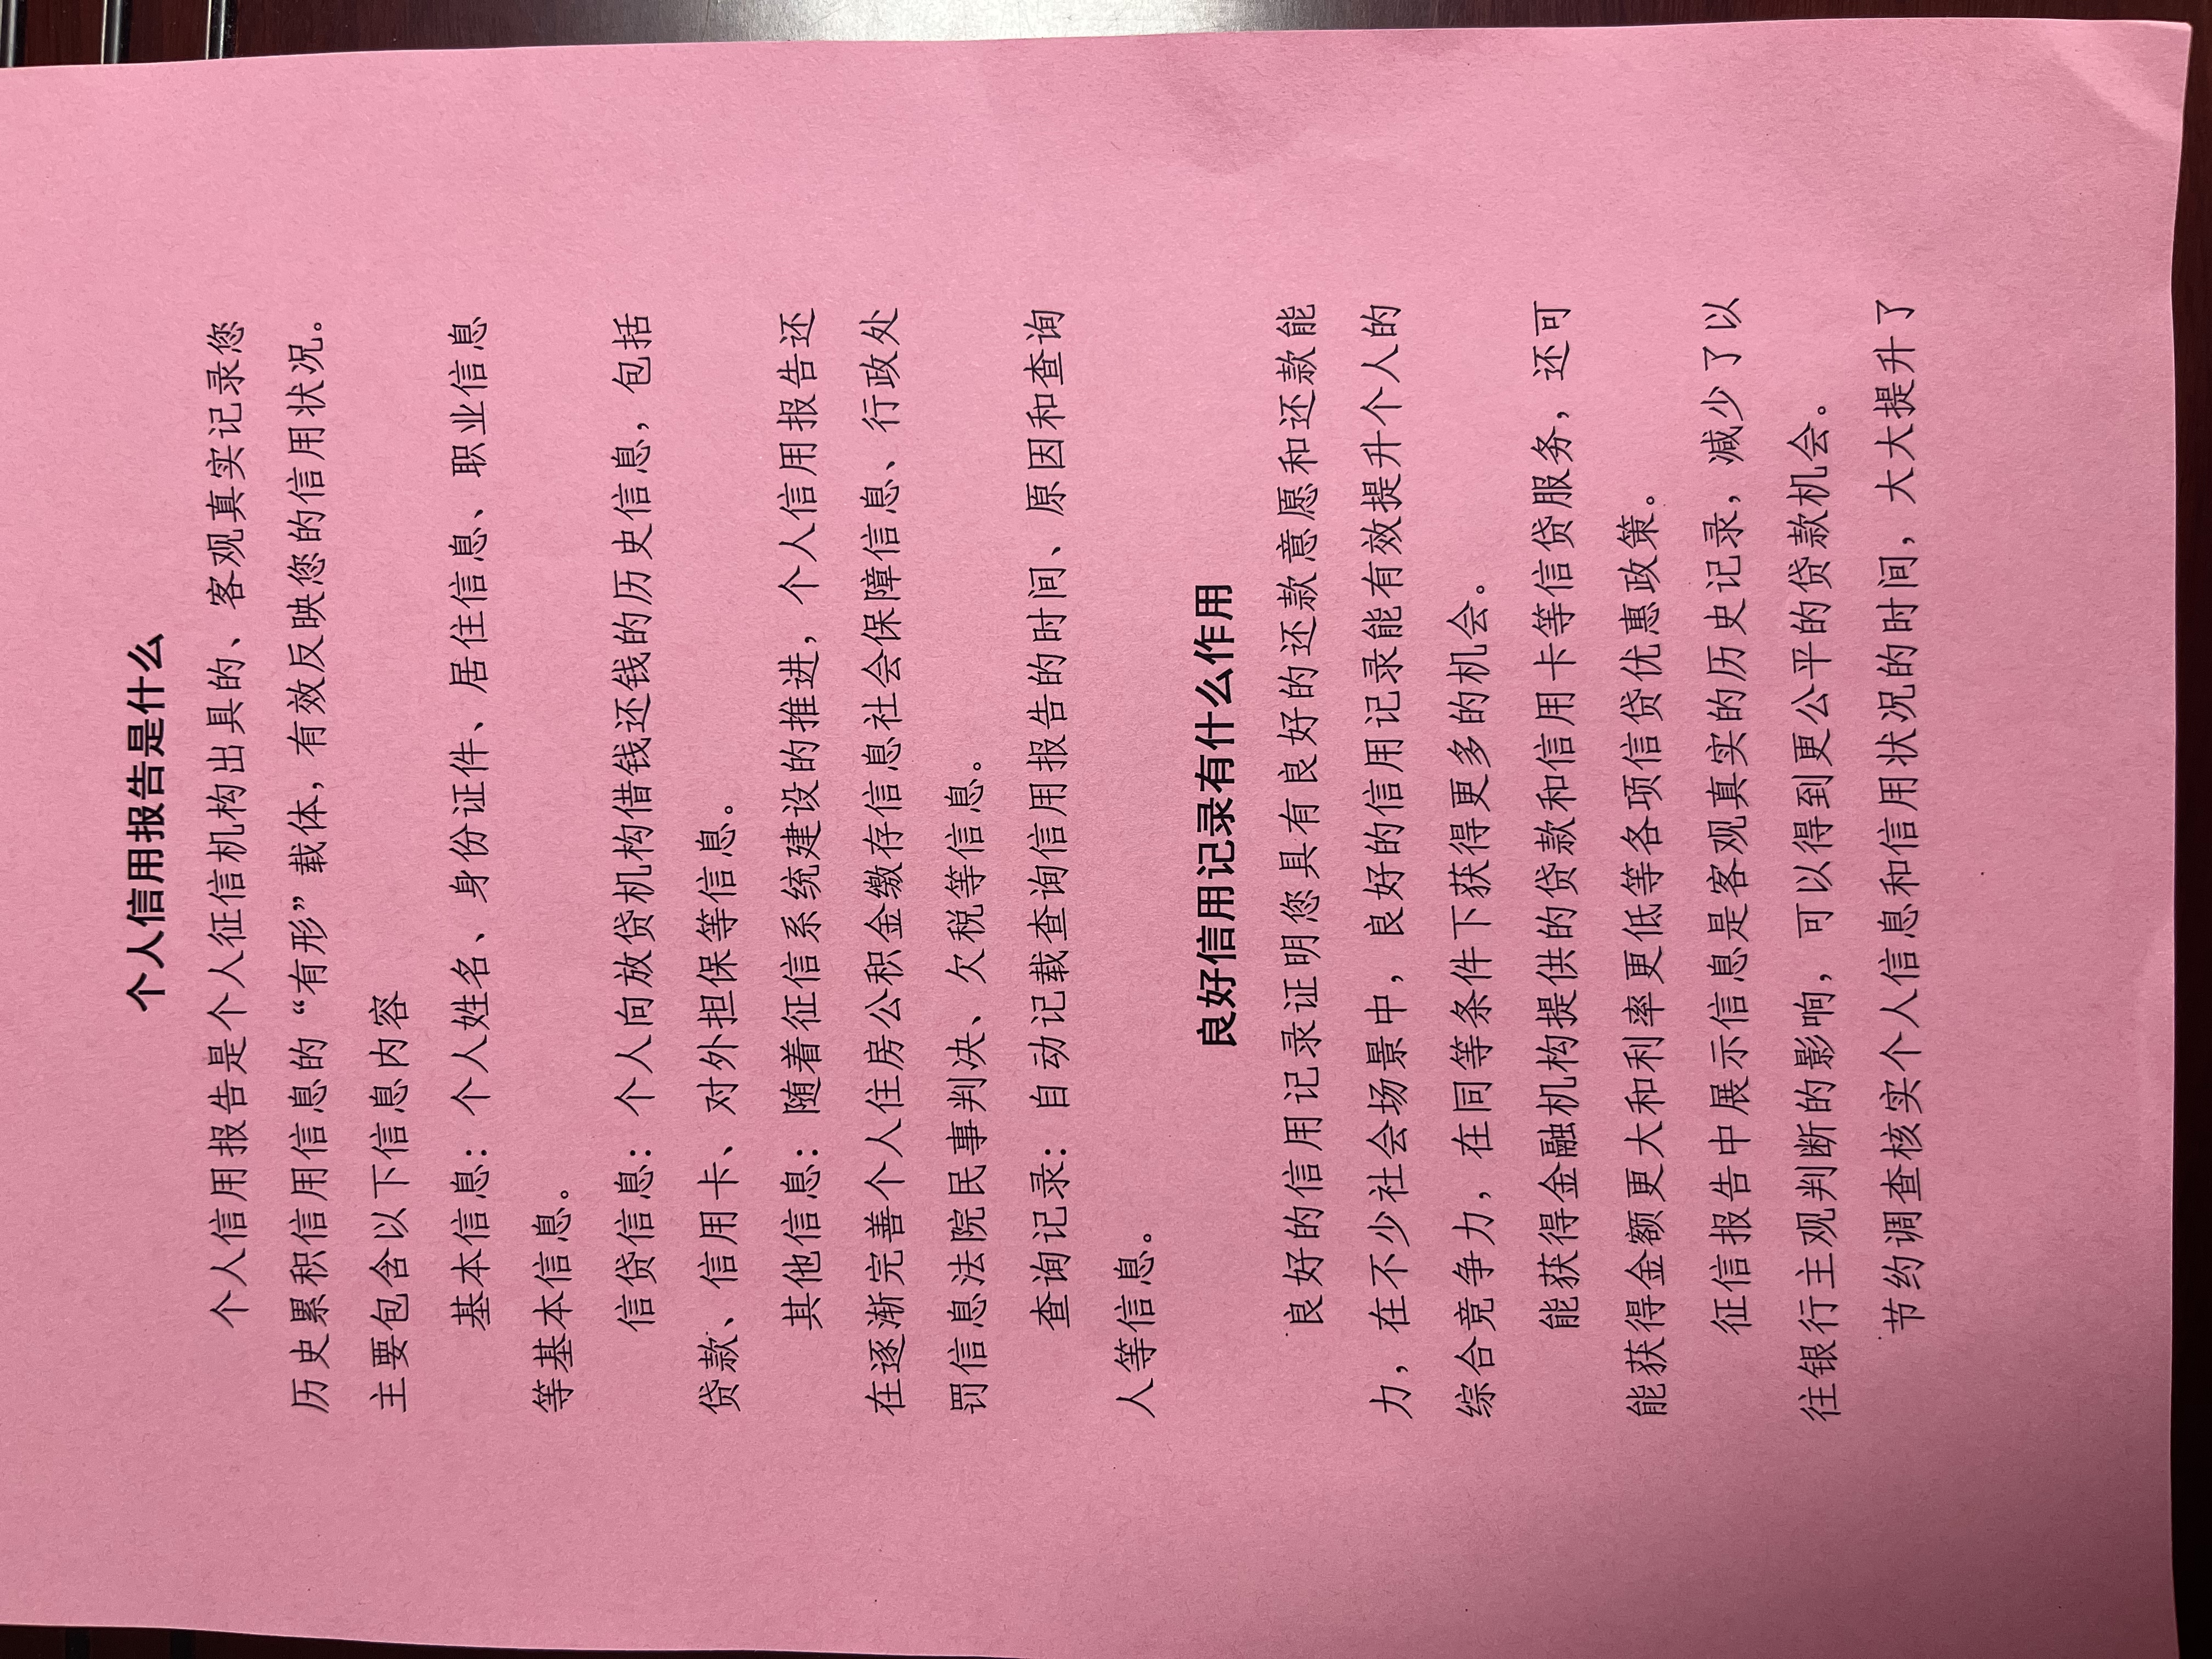 个人信用报告是什么
个人信用报告是个人征信机构出具的、客观真实记录您
历史累积信用信息的“有形”载体，有效反映您的信用状况。
主要包含以下信息内容
基本信息：个人姓名、身份证件、居住信息、职业信息
等基本信息。
信贷信息：个人向放贷机构借钱还钱的历史信息，包括
贷款、信用卡、对外担保等信息。
其他信息：随着征信系统建设的推进，个人信用报告还
在逐渐完善个人住房公积金缴存信息社会保障信息、行政处
罚信息法院民事判决、欠税等信息。
查询记录：自动记载查询信用报告的时间、原因和查询
人等信息。
良好信用记录有什么作用
良好的信用记录证明您具有良好的还款意愿和还款能
力，在不少社会场景中，良好的信用记录能有效提升个人的
综合竞争力，在同等条件下获得更多的机会。
能获得金融机构提供的贷款和信用卡等信贷服务，还可
能获得金额更大和利率更低等各项信贷优惠政策。
征信报告中展示信息是客观真实的历史记录，减少了以
往银行主观判断的影响，可以得到更公平的贷款机会。
节约调查核实个人信息和信用状况的时间，大大提升了